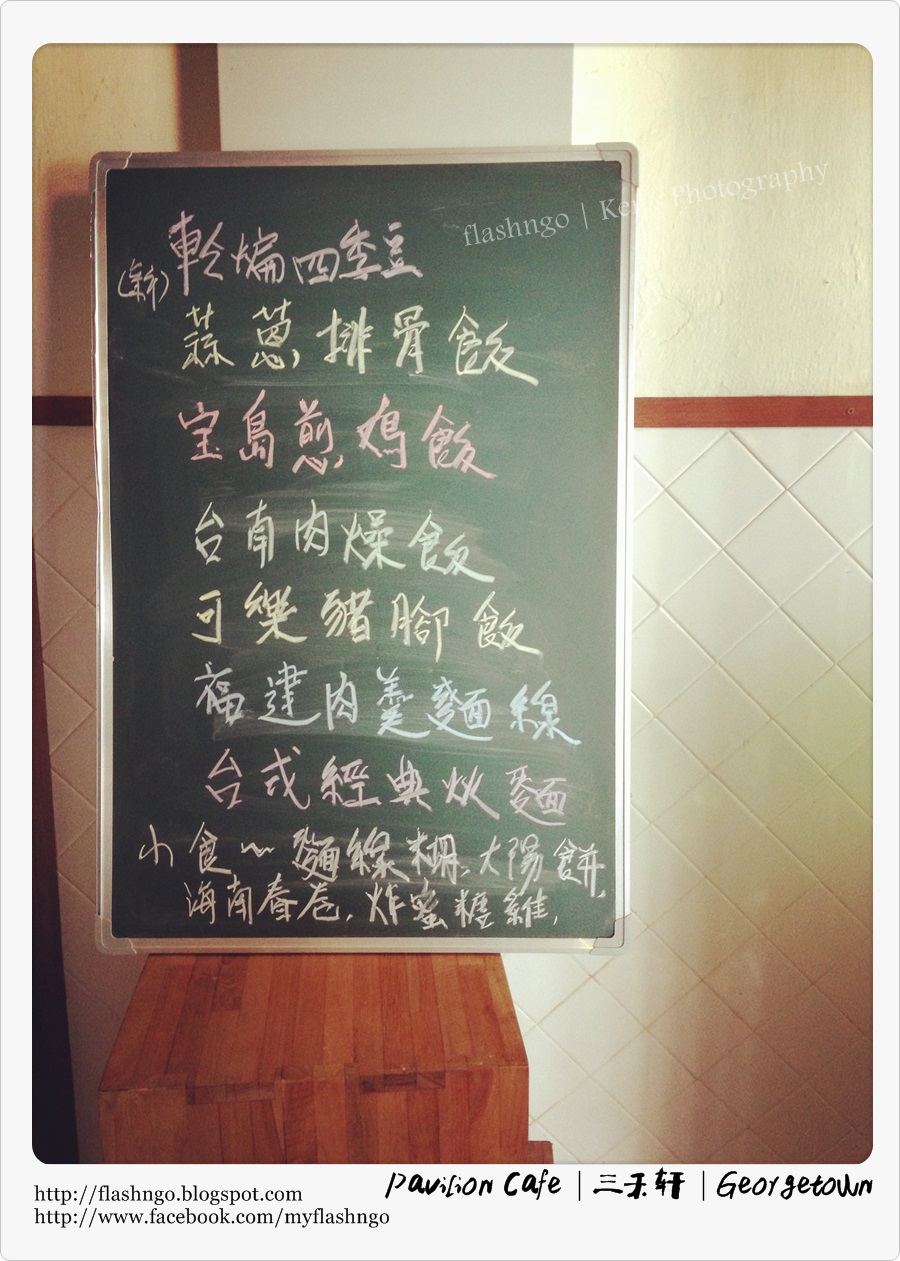 flashngo | Ken's Photography
煸四季豆
蒜蔥排骨飯
宝島煎鸡飯
台南肉燥飯
可樂豬腳飯
福建肉羹麵線
台式經典炊麵
小食~ 麵線糊、大陽餅,
海南春卷, 炸蜜糖雞,
Pavilion Cafe | 三禾轩 | Georgetown
http://flashngo.blogspot.com
http://www.facebook.com/myflashngo